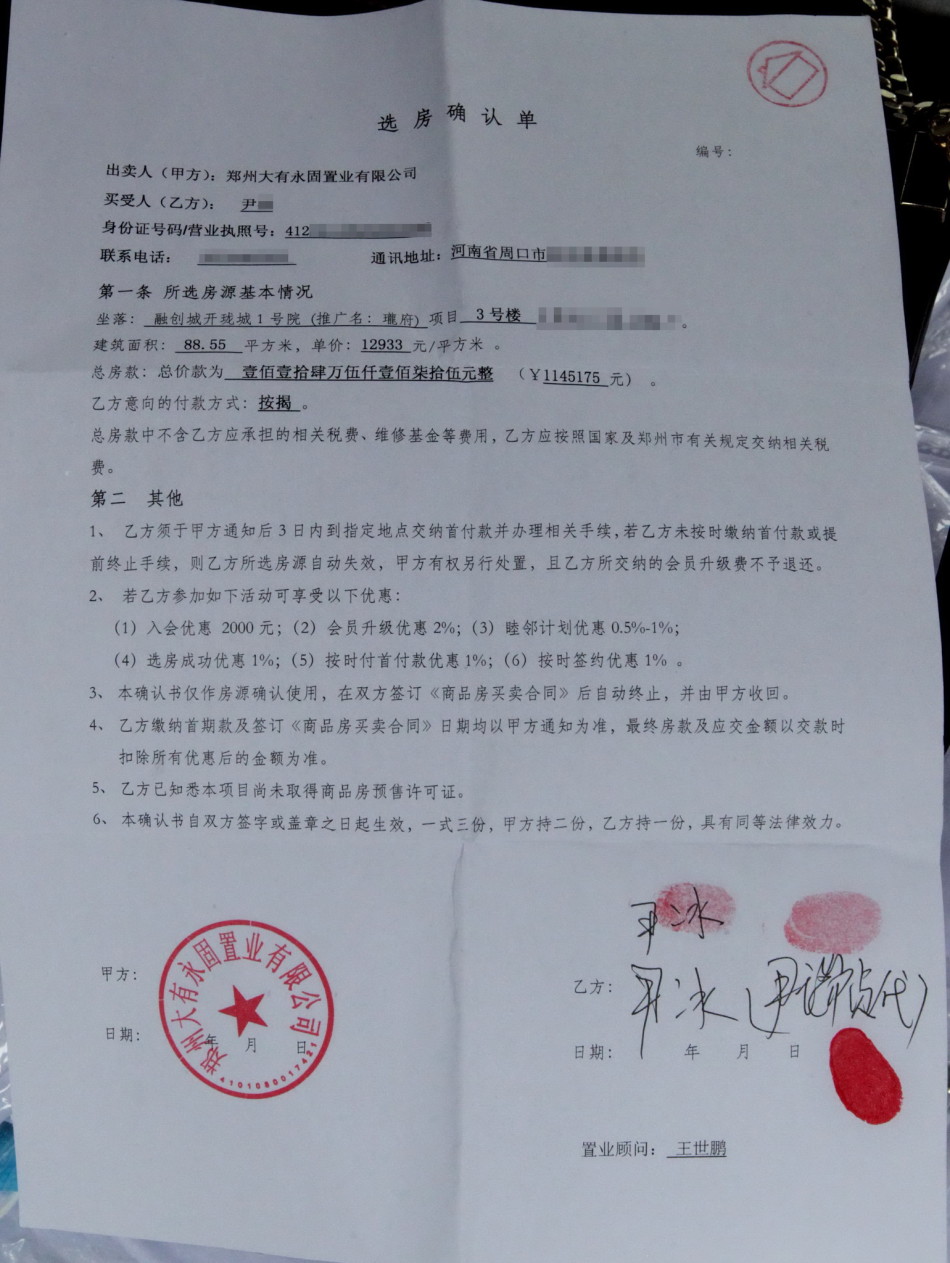 选房确认单
编号：
出卖人（甲方）：郑州大有永固置业有限公司
买受人（乙方）： 尹
身份证号码/营业执照号：412
联系电话： 通讯地址：河南省周口市
第一条 所选房源基本情况
坐落： 融创城开珑城1号院（推广名：瓏府）项目 3号楼 。
建筑面积： 88.55 平方米，单价： 12933 元/平方米 。
总房款：总价款为 壹佰壹拾肆万伍仟壹佰柒拾伍元整 （￥1145175 元） 。
乙方意向的付款方式：按揭 。
总房款中不含乙方应承担的相关税费、维修基金等费用，乙方应按照国家及郑州市有关规定交纳相关税
费。
第二 其他
1、 乙方须于甲方通知后3日内到指定地点交纳首付款并办理相关手续，若乙方未按时缴纳首付款或提
前终止手续，则乙方所选房源自动失效，甲方有权另行处置，且乙方所交纳的会员升级费不予退还。
2、 若乙方参加如下活动可享受以下优惠：
（1）入会优惠 2000元；（2）会员升级优惠2%；（3）睦邻计划优惠0.5%-1%；
（4）选房成功优惠1%；（5）按时付首付款优惠1%；（6）按时签约优惠1% 。
3、 本确认书仅作房源确认使用，在双方签订《商品房买卖合同》后自动终止，并由甲方收回。
4、 乙方缴纳首期款及签订《商品房买卖合同》日期均以甲方通知为准，最终房款及应交金额以交款时
扣除所有优惠后的金额为准。
5、 乙方已知悉本项目尚未取得商品房预售许可证。
6、 本确认书自双方签字或盖章之日起生效，一式三份，甲方持二份，乙方持一份，具有同等法律效力。
尹冰
甲方：
郑州大有永固置业有限公司
4101080017421
日期： 年 月 日
乙方： 尹冰（尹 代）
日期： 年 月 日
置业顾问： 王世鹏